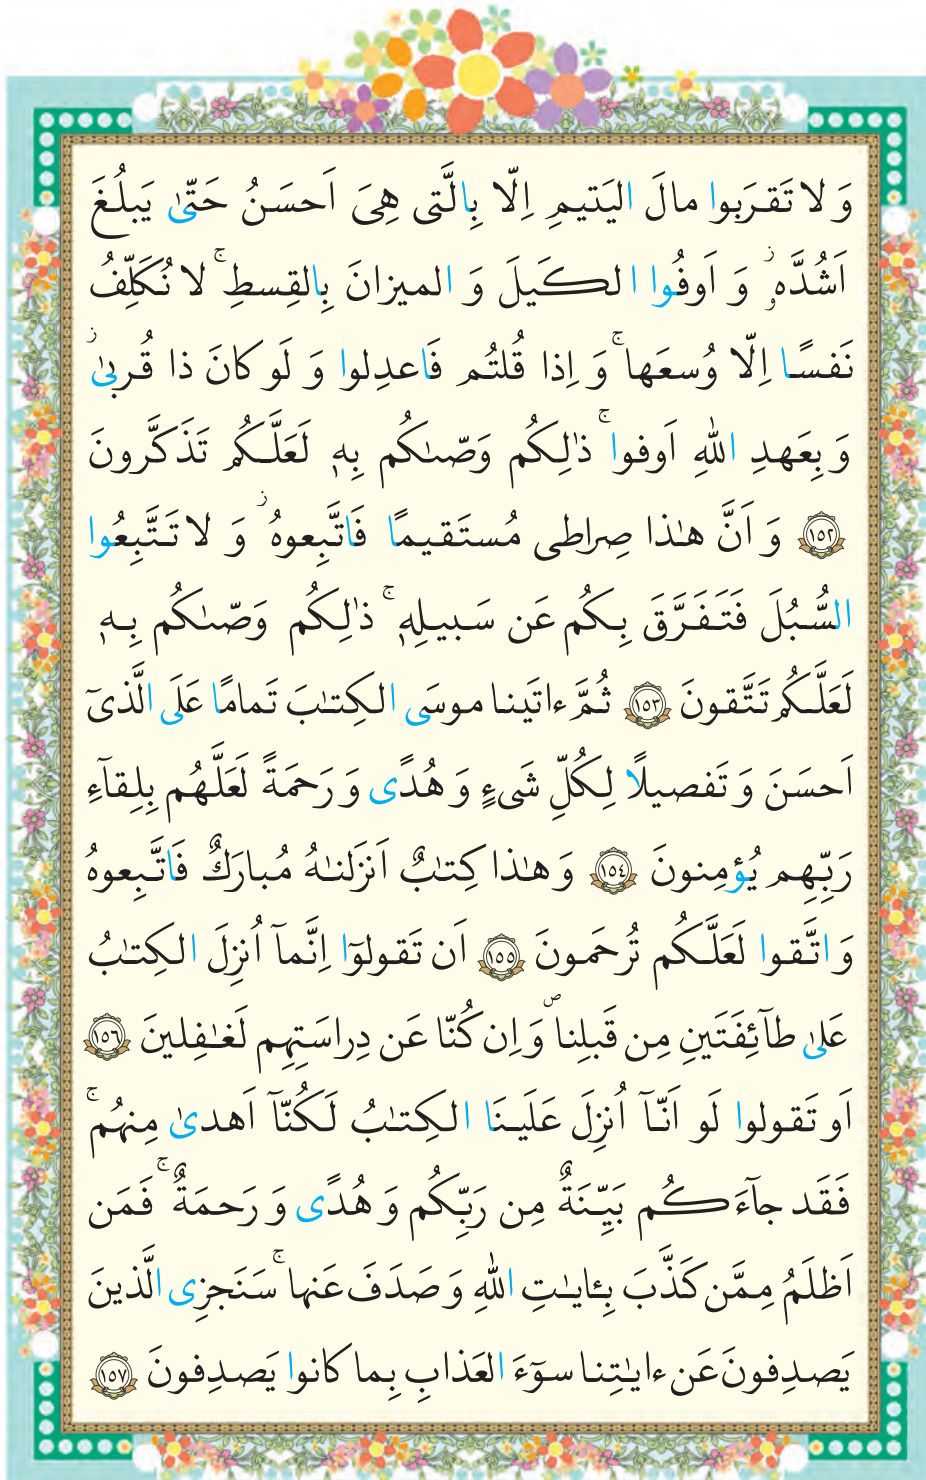 وَ لا تَقـرَبوا مالَ اليَتيمِ اِلّا بِالَّتى هِىَ اَحسَنُ حَتّىٰ يَبلُغَ
اَشُدَّهٗ ۖز وَ اَوفُوا الكَيلَ وَ الميزانَ بِالقِسطِ ۚ لا نُكَلِّفُ
نَفسًا اِلّا وُسعَها ۚ وَ اِذا قُلتُم فَاعدِلوا وَ لَو كانَ ذا قُربىٰ ز
وَ بِعَهدِ اللّٰهِ اَوفوا ۚ ذٰلِكُم وَصّىٰكُم بِهٖ لَعَلَّكُم تَذَكَّرونَ
﴿١٥٢﴾ وَ اَنَّ هـٰذا صِراطى مُستَقيمًا فَاتَّبِعوهُ ز وَ لا تَتَّبِعُوا
السُّبُلَ فَتَفَرَّقَ بِكُم عَن سَبيلِهٖ ۚ ذٰلِكُم وَصّىٰكُم بِهٖ
لَعَلَّكُم تَتَّقونَ ﴿١٥٣﴾ ثُمَّ ءاتَينا موسَى الكِتـٰبَ تَمامًا عَلَى الَّذىٓ
اَحسَنَ وَ تَفصيلًا لِكُلِّ شَىءٍ وَ هُدًى وَ رَحمَةً لَعَلَّهُم بِلِقآءِ
رَبِّهِم يُؤمِنونَ ﴿١٥٤﴾ وَ هـٰذا كِتـٰبٌ اَنزَلنـٰهُ مُبارَكٌ فَاتَّبِعوهُ
وَ اتَّقوا لَعَلَّكُم تُرحَمونَ ﴿١٥٥﴾ اَن تَقولوٓا اِنَّمآ اُنزِلَ الكِتـٰبُ
عَلىٰ طآئِفَتَينِ مِن قَبلِنا ص وَ اِن كُنّا عَن دِراسَتِهِم لَغـٰفِلينَ ﴿١٥٦﴾
اَو تَقولوا لَو اَنّآ اُنزِلَ عَلَينَا الكِتـٰبُ لَكُنّآ اَهدىٰ مِنهُم ۚ
فَقَد جآءَكُم بَيِّنَةٌ مِن رَبِّكُم وَ هُدًى وَ رَحمَةٌ ۚ فَمَن
اَظلَمُ مِمَّن كَذَّبَ بِـٔايـٰتِ اللّٰهِ وَ صَدَفَ عَنها ۚ سَنَجزِى الَّذينَ
يَصدِفونَ عَن ءايـٰتِنا سوٓءَ العَذابِ بِما كانوا يَصدِفونَ ﴿١٥٧﴾